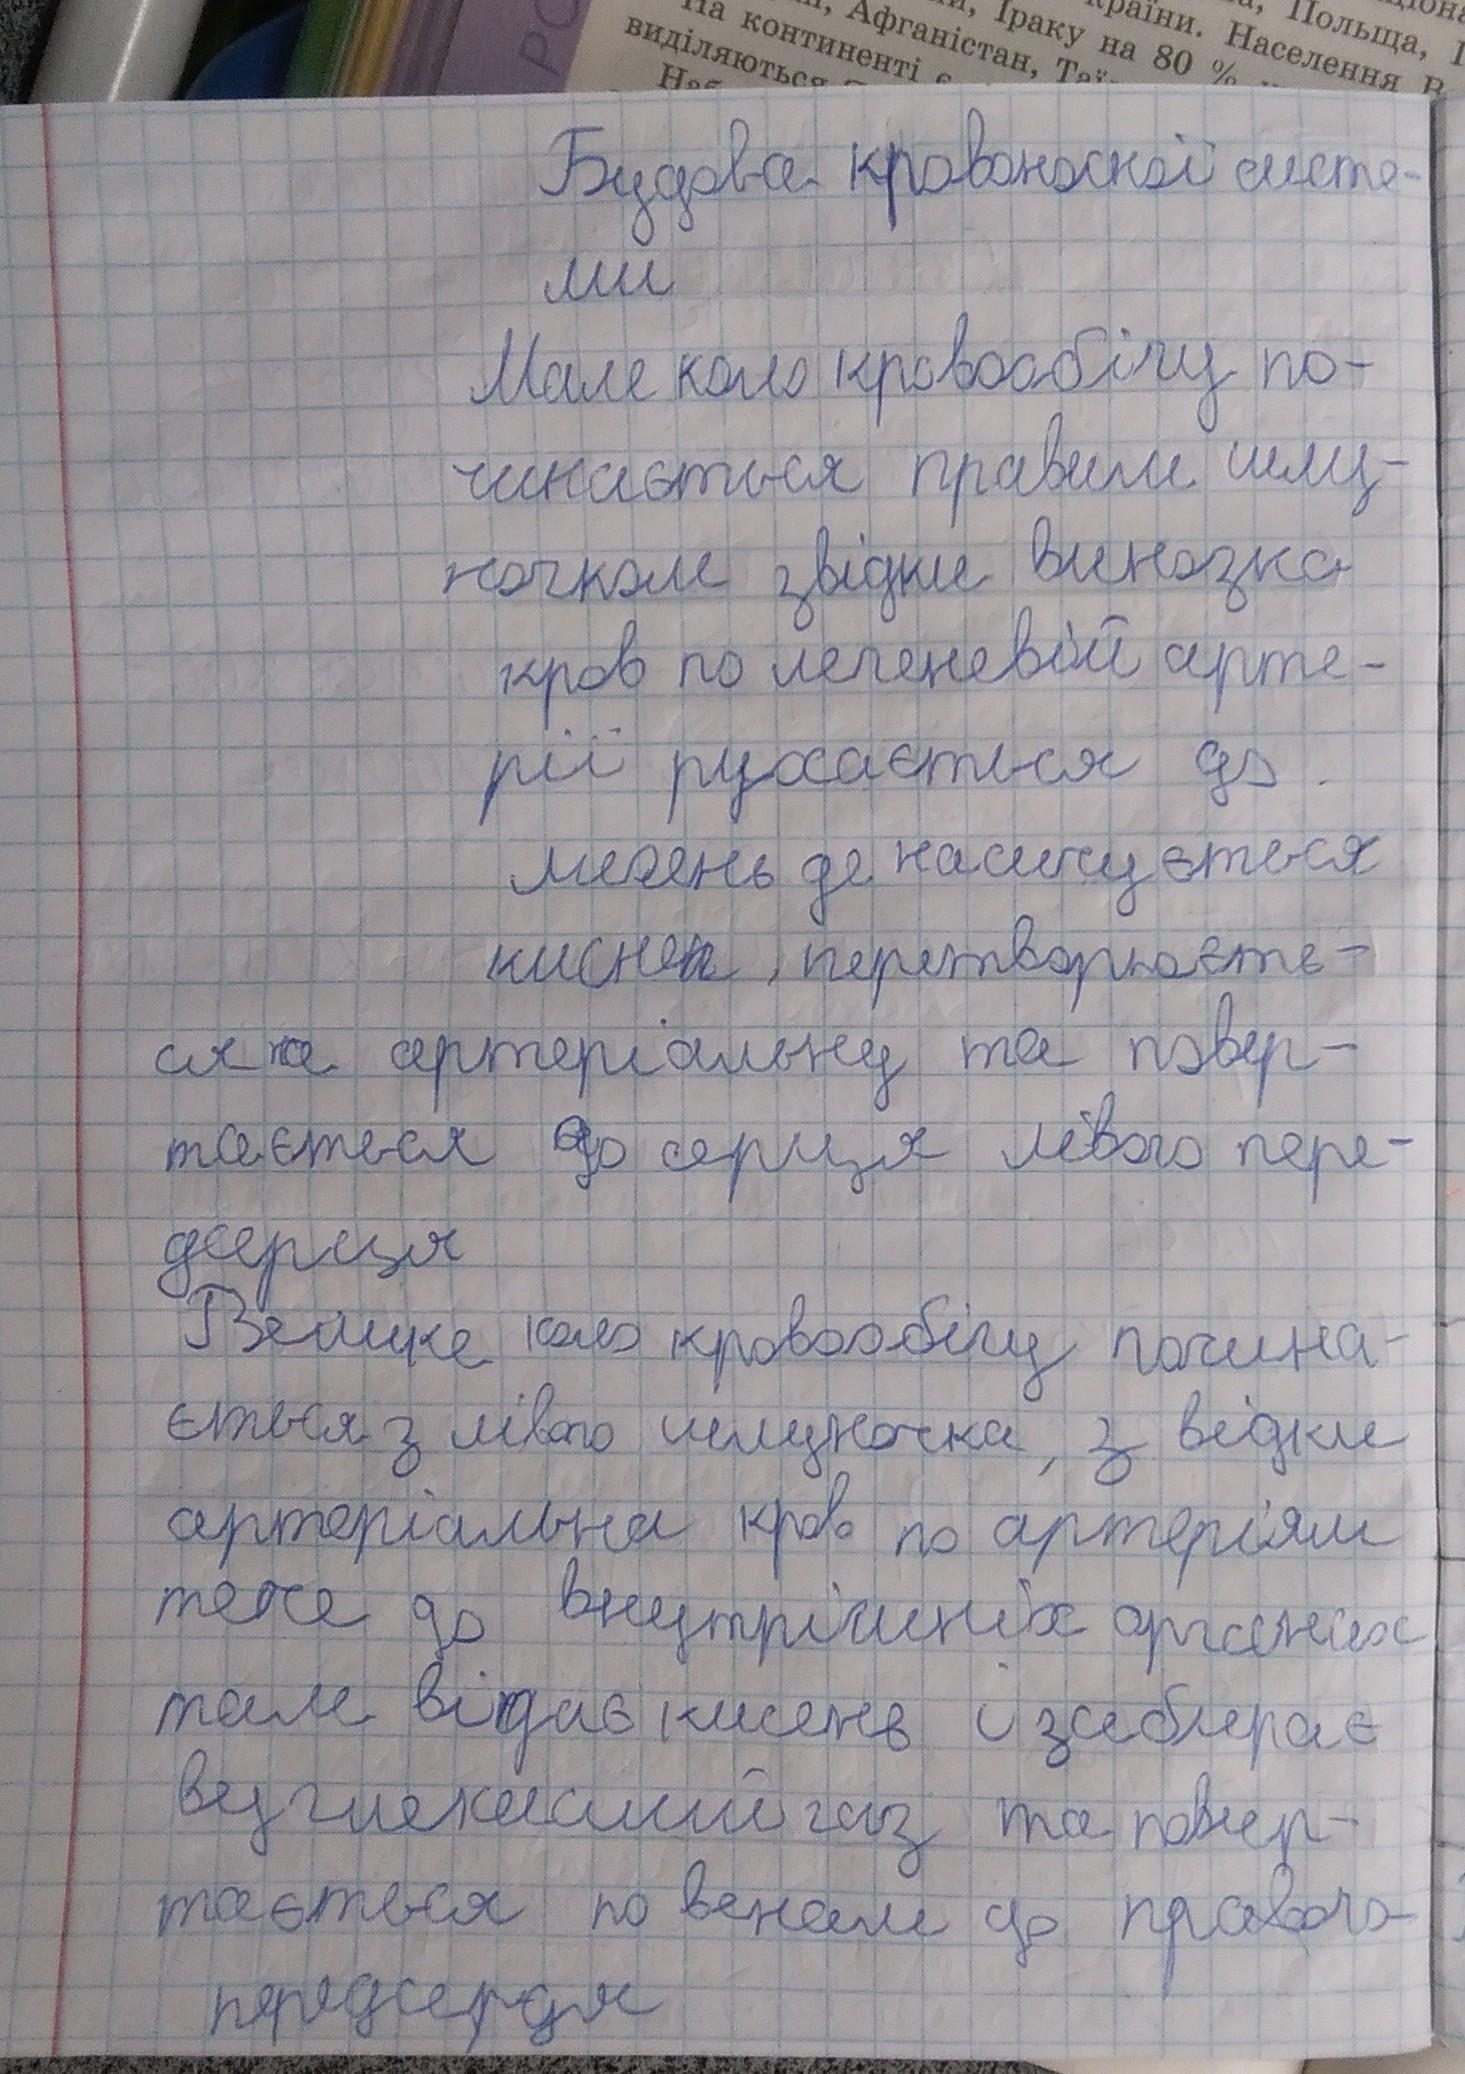 РО
країни. Населення В
, Польща, І
Іраку на 80 %
Афганістан,
На континенті є
виділяються
Будова кровоносної систе-
ми
Мале коло кровообігу по-
чинається правим шлу-
ночком звідки винозка
кров по легеневій арте-
рії рухається до
легень де насичується
киснем, перетворюєть-
ся на артеріальну та повер-
тається до серця лівого пере-
дсерця
Велике коло кровообігу почина-
ється з лівого шлуночка, з відки
артеріальна кров по артеріям
тече до внутрішніх органах
там відає кисень і забирає
вуглекислий газ та повер-
тається по венам до правого
передсердя